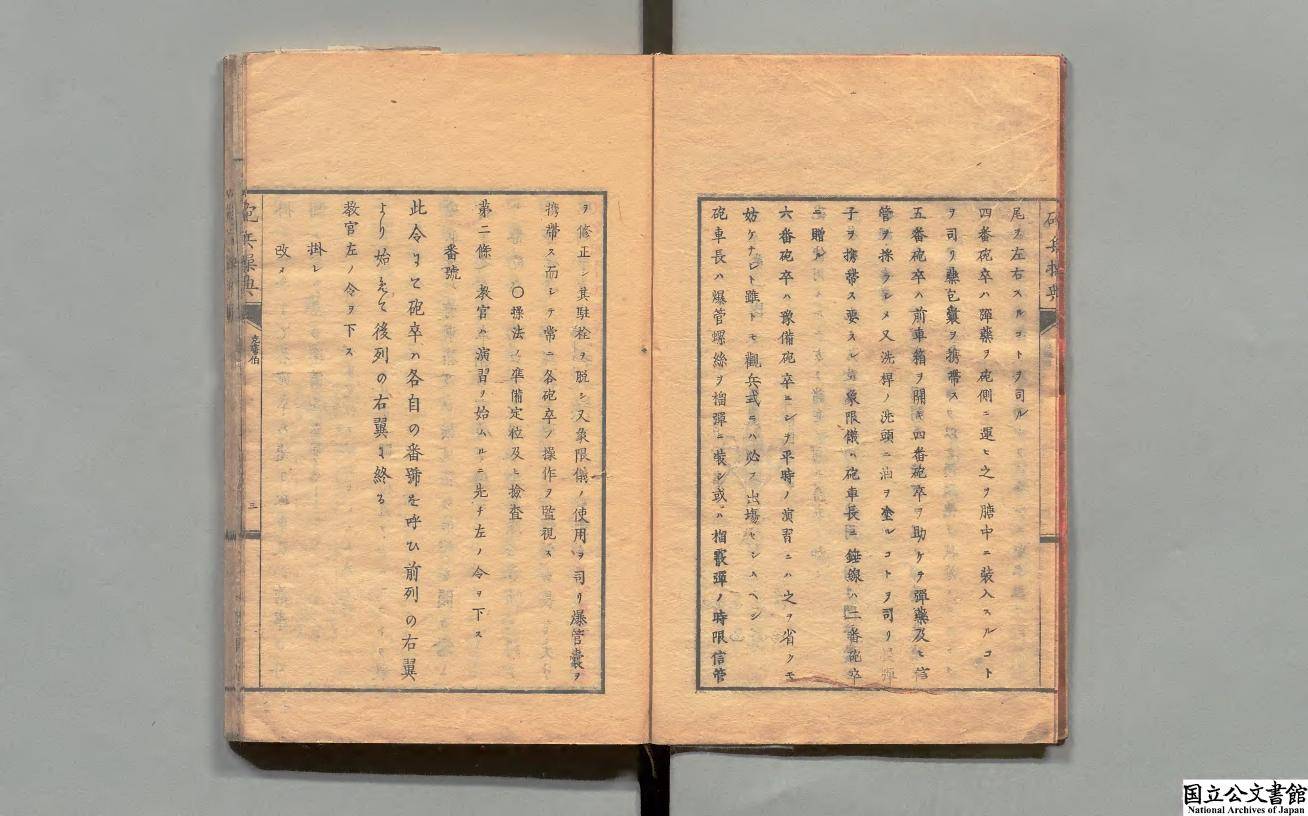 砲兵操典
尾ヲ左右スルコトヲ司ル
四番砲卒ハ彈藥ヲ砲側ニ運ヒ之ヲ膅中ニ裝入スルコト
ヲ司リ藥包嚢ヲ携帶ス
五番砲卒ハ前車箱ヲ開キ四番砲卒ヲ助ケテ彈藥及ヒ信
管ヲ採ラシメ又洗桿ノ洗頭ニ油ヲ塗ルコトヲ司リ
子ヲ携帶ス要スレハ象限儀ハ砲車長ニ錘線ハ二番砲卒
ニ贈ル
六番砲卒ハ豫備砲卒ニシテ平時ノ演習ニハ之ヲ省クモ
妨ケナシト雖トモ觀兵式ニハ必ス出塲セシムヘシ
砲車長ハ爆管螺絲ヲ榴彈ニ裝シ或ハ榴霰彈ノ時限信管
ヲ修正シ其駐栓ヲ脱シ又象限儀ノ使用ヲ司リ爆管嚢ヲ
携帶ス而シテ常ニ各砲卒ノ操作ヲ監視ス
〇操法ノ準備定位及ヒ檢査
第二條 教官ハ演習ヲ始ムルニ先チ左ノ令ヲ下ス
番號
此令にて砲卒ハ各自の番號を呼ひ前列の右翼
より始えて後列の右翼に終る
教官左ノ令ヲ下ス
掛レ
改メ
砲兵操典
三
国立公文書館
National Archives of Japan